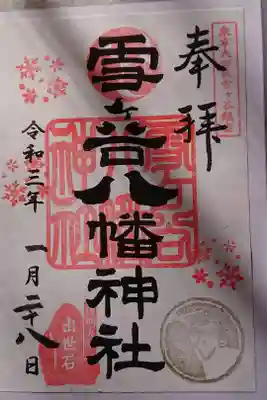 奉拝
雪ヶ谷八幡神社
令和三年 一月二十八日
出世石